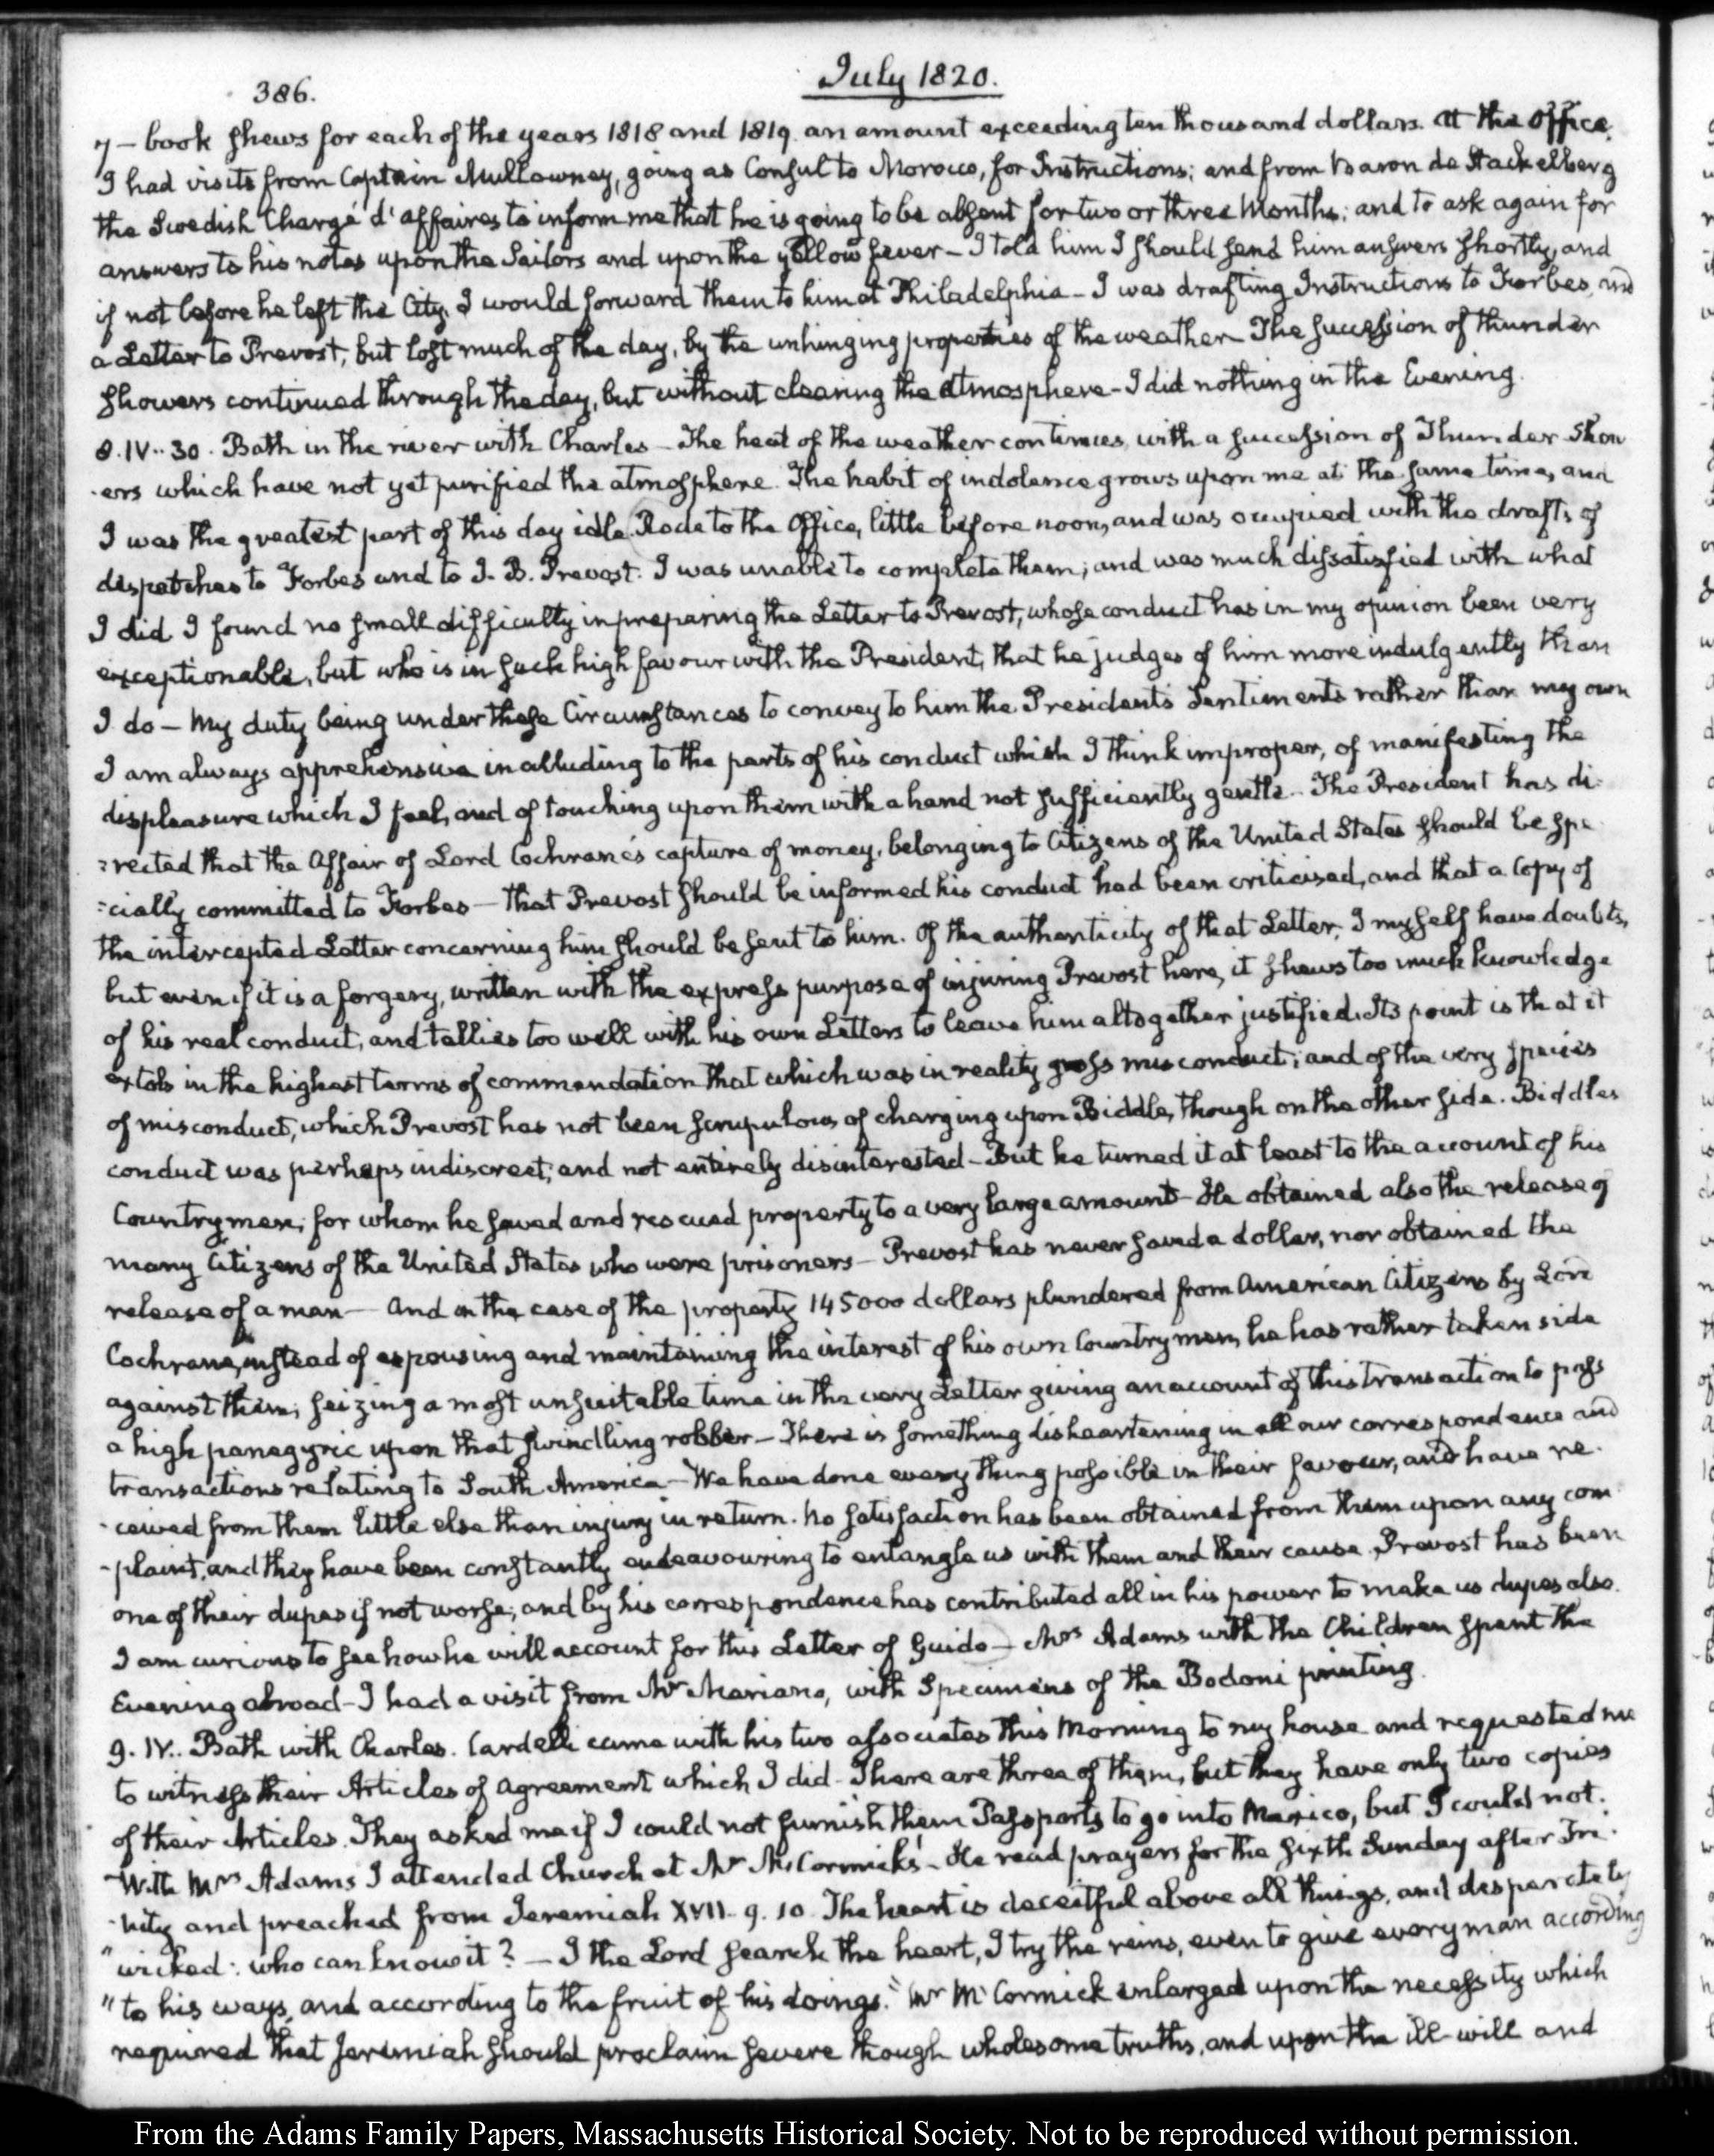 386.
July 1820.
7 — book shews for each of the years 1818 and 1819. an amount exceeding ten thousand dollars. At the Office.
I had visits from Captain Mullowney, going as Consul to Morocco, for Instructions; and from Baron de Stackelberg
the Swedish Chargé d'affaires to inform me that he is going to be absent for two or three Months; and to ask again for
answers to his notes upon the Sailors and upon the yellow fever — I told him I should send him answers shortly, and
if not before he left the City, I would forward them to him at Philadelphia — I was drafting Instructions to Forbes, and
a Letter to Prevost, but lost much of the day, by the unhinging properties of the weather The succession of thunder
showers continued through the day, but without clearing the atmosphere — I did nothing in the Evening.
8. IV.. 30. Bath in the river with Charles — The heat of the weather continues, with a succession of Thunder Show
-ers which have not yet purified the atmosphere. The habit of indolence grows upon me at the same time, and
I was the greatest part of this day idle. Rode to the Office, little before noon, and was occupied with the drafts of
dispatches to Forbes and to J. B. Prevost. I was unable to complete them; and was much dissatisfied with what
I did I found no small difficulty in preparing the Letter to Prevost, whose conduct has in my opinion been very
exceptionable, but who is in such high favour with the President, that he judges of him more indulgently than
I do — My duty being under these Circumstances to convey to him the President's Sentiments rather than my own
I am always apprehensive in alluding to the parts of his conduct which I think improper, of manifesting the
displeasure which I feel, and of touching upon them with a hand not sufficiently gentle — The President has di-
=rected that the Affair of Lord Cochrane's capture of money, belonging to Citizens of the United States should be spe
=cially committed to Forbes — that Prevost should be informed his conduct had been criticised, and that a Copy of
the intercepted Letter concerning him should be sent to him. Of the authenticity of that Letter, I myself have doubts,
but even if it is a forgery, written with the express purpose of injuring Prevost here, it shews too much knowledge
of his real conduct, and tallies too well with his own Letters to leave him altogether justified. Its point is that it
extols in the highest terms of commendation that which was in reality gross misconduct; and of the very species
of misconduct, which Prevost has not been scrupulous of charging upon Biddle, though on the other side. Biddles
conduct was perhaps indiscreet; and not entirely disinterested — But he turned it at least to the account of his
Countrymen; for whom he saved and rescued property to a very large amount — He obtained also the release of
many Citizens of the United States who were prisoners — Prevost has never saved a dollar, nor obtained the
release of a man — And in the case of the property 145000 dollars plundered from American Citizens by Lord
Cochrane, instead of espousing and maintaining the interest of his own Countrymen, he has rather taken side
against them; seizing a most unsuitable time in the very Letter giving an account of this transaction to pass
a high panegyric upon that swindling robber — There is something disheartening in all our correspondence and
transactions relating to South America — We have done every thing possible in their favour, and have re-
-ceived from them little else than injury in return. No satisfaction has been obtained from them upon any com
-plaint, and they have been constantly endeavouring to entangle us with them and their cause. Prevost has been
one of their dupes if not worse; and by his correspondence has contributed all in his power to make us dupes also.
I am curious to see how he will account for this Letter of Guido — Mrs Adams with the Children spent the
Evening abroad — I had a visit from Mr Mariano, with Specimens of the Bodoni printing.
9. IV.. Bath with Charles. Cardelli came with his two associates this Morning to my house and requested me
to witness their Articles of agreement which I did — There are three of them, but they have only two copies
of their Articles. They asked me if I could not furnish them Passports to go into Mexico, but I could not.
With Mrs Adams I attended Church at Mr McCormick's — He read prayers for the sixth Sunday after Tri-
-nity and preached from Jeremiah XVII. 9. 10. The heart is deceitful above all things, and desperately
"wicked: who can know it? — I the Lord search the heart, I try the reins, even to give every man according
"to his ways, and according to the fruit of his doings." Mr McCormick enlarged upon the necessity which
required that Jeremiah should proclaim severe though wholesome truths, and upon the ill-will and
From the Adams Family Papers, Massachusetts Historical Society. Not to be reproduced without permission.